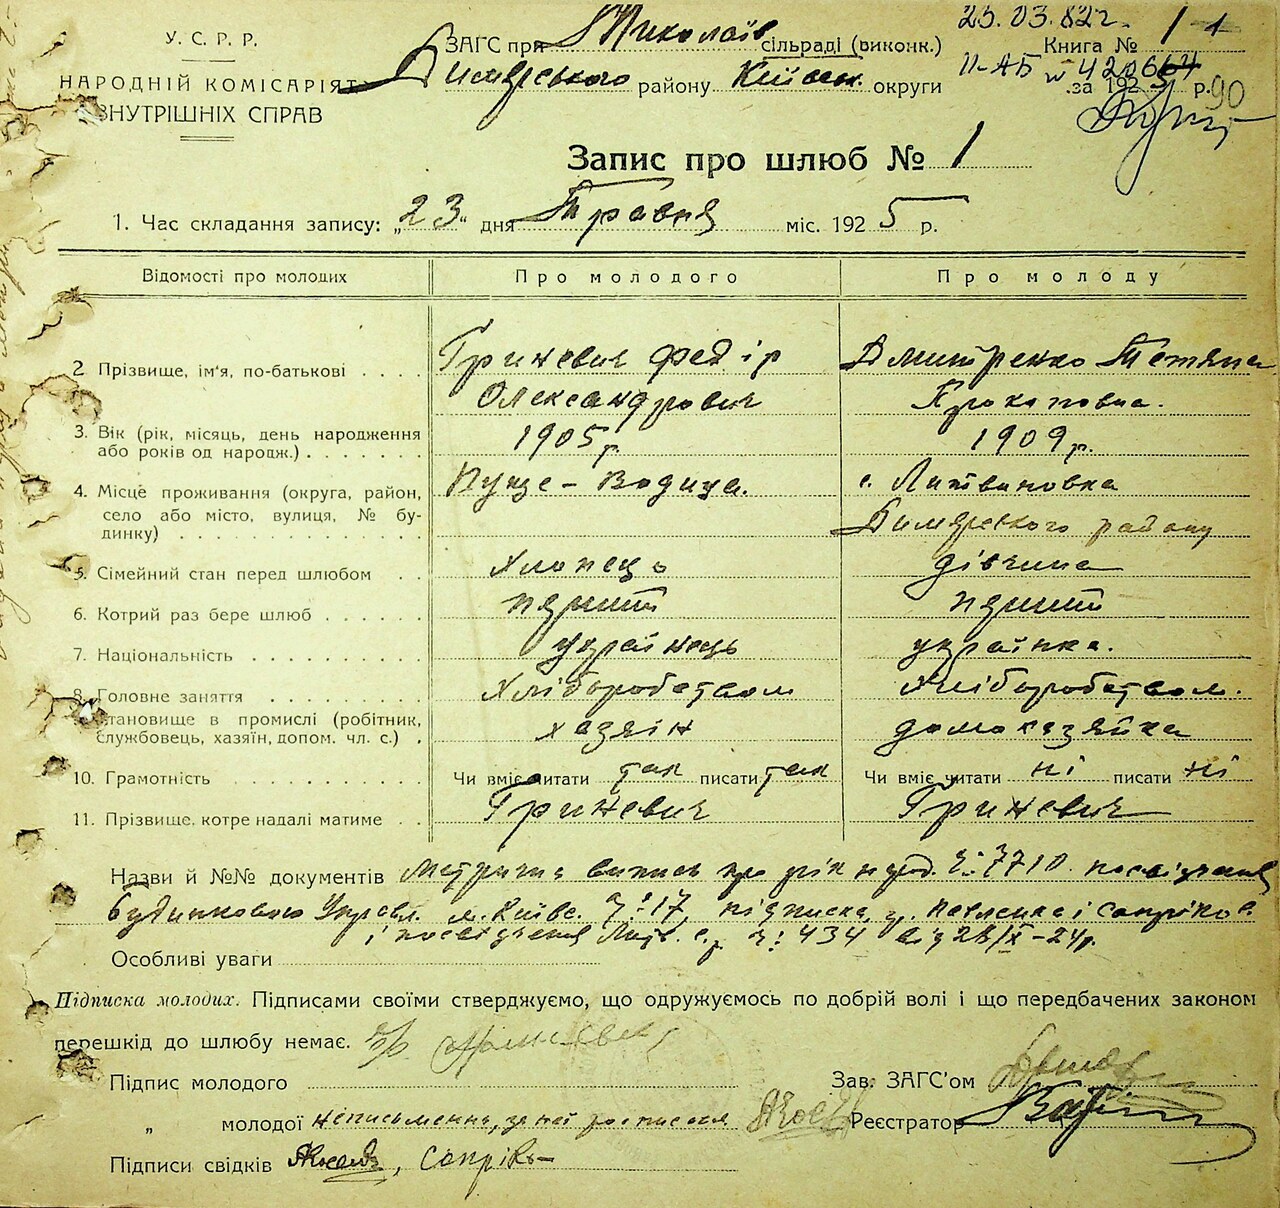 У. С. Р. Р.
НАРОДНІЙ КОМІСАРІЯТ
ВНУТРІШНІХ СПРАВ
23.03.82г.
ЗАГС при Миколаїв сільраді (виконк.)
Книга № 1
Димерського району Київськ. округи
II-АБ № за 192 5 р.
90
Запис про шлюб № 1
1. Час складання запису: „23" дня Травня міс. 1925 р.
Відомості про молодих Про молодого Про молоду
2. Прізвище, ім'я, по-батькові Гриневич Федір Олександрович Дмитренко Тетяна Прокоповна.
3. Вік (рік, місяць, день народження або років од народж.) 1905 р. 1909 р.
4. Місце проживання (округа, район, село або місто, вулиця, № будинку) Пуще-Водиця. с. Литвиновка Димерського району
5. Сімейний стан перед шлюбом хлопець дівчина
6. Котрий раз бере шлюб перший перший
7. Національність українець українка.
8. Головне заняття хліборобством хліборобством.
Становище в промислі (робітник, службовець, хазяїн, допом. чл. с.) хазяїн домохазяйка
10. Грамотність Чи вміє читати так писати так Чи вміє читати ні писати ні
11. Прізвище, котре надалі матиме Гриневич Гриневич
Назви й №№ документів Метрична випись про рік народ. ч: 7710 посвідчення
Будинкового Управл. м. Київа ч: 17, підписка і
і посвідчення Литв. с.р. ч: 434 від 28/IX-24р.
Особливі уваги
Підписка молодих. Підписами своїми стверджуємо, що одружуємось по добрій волі і що передбачених законом
перешкід до шлюбу немає.
Підпис молодого
Зав. ЗАГС'ом
„ молодої неписьменна, за неї росписався
Реєстратор
Підписи свідків